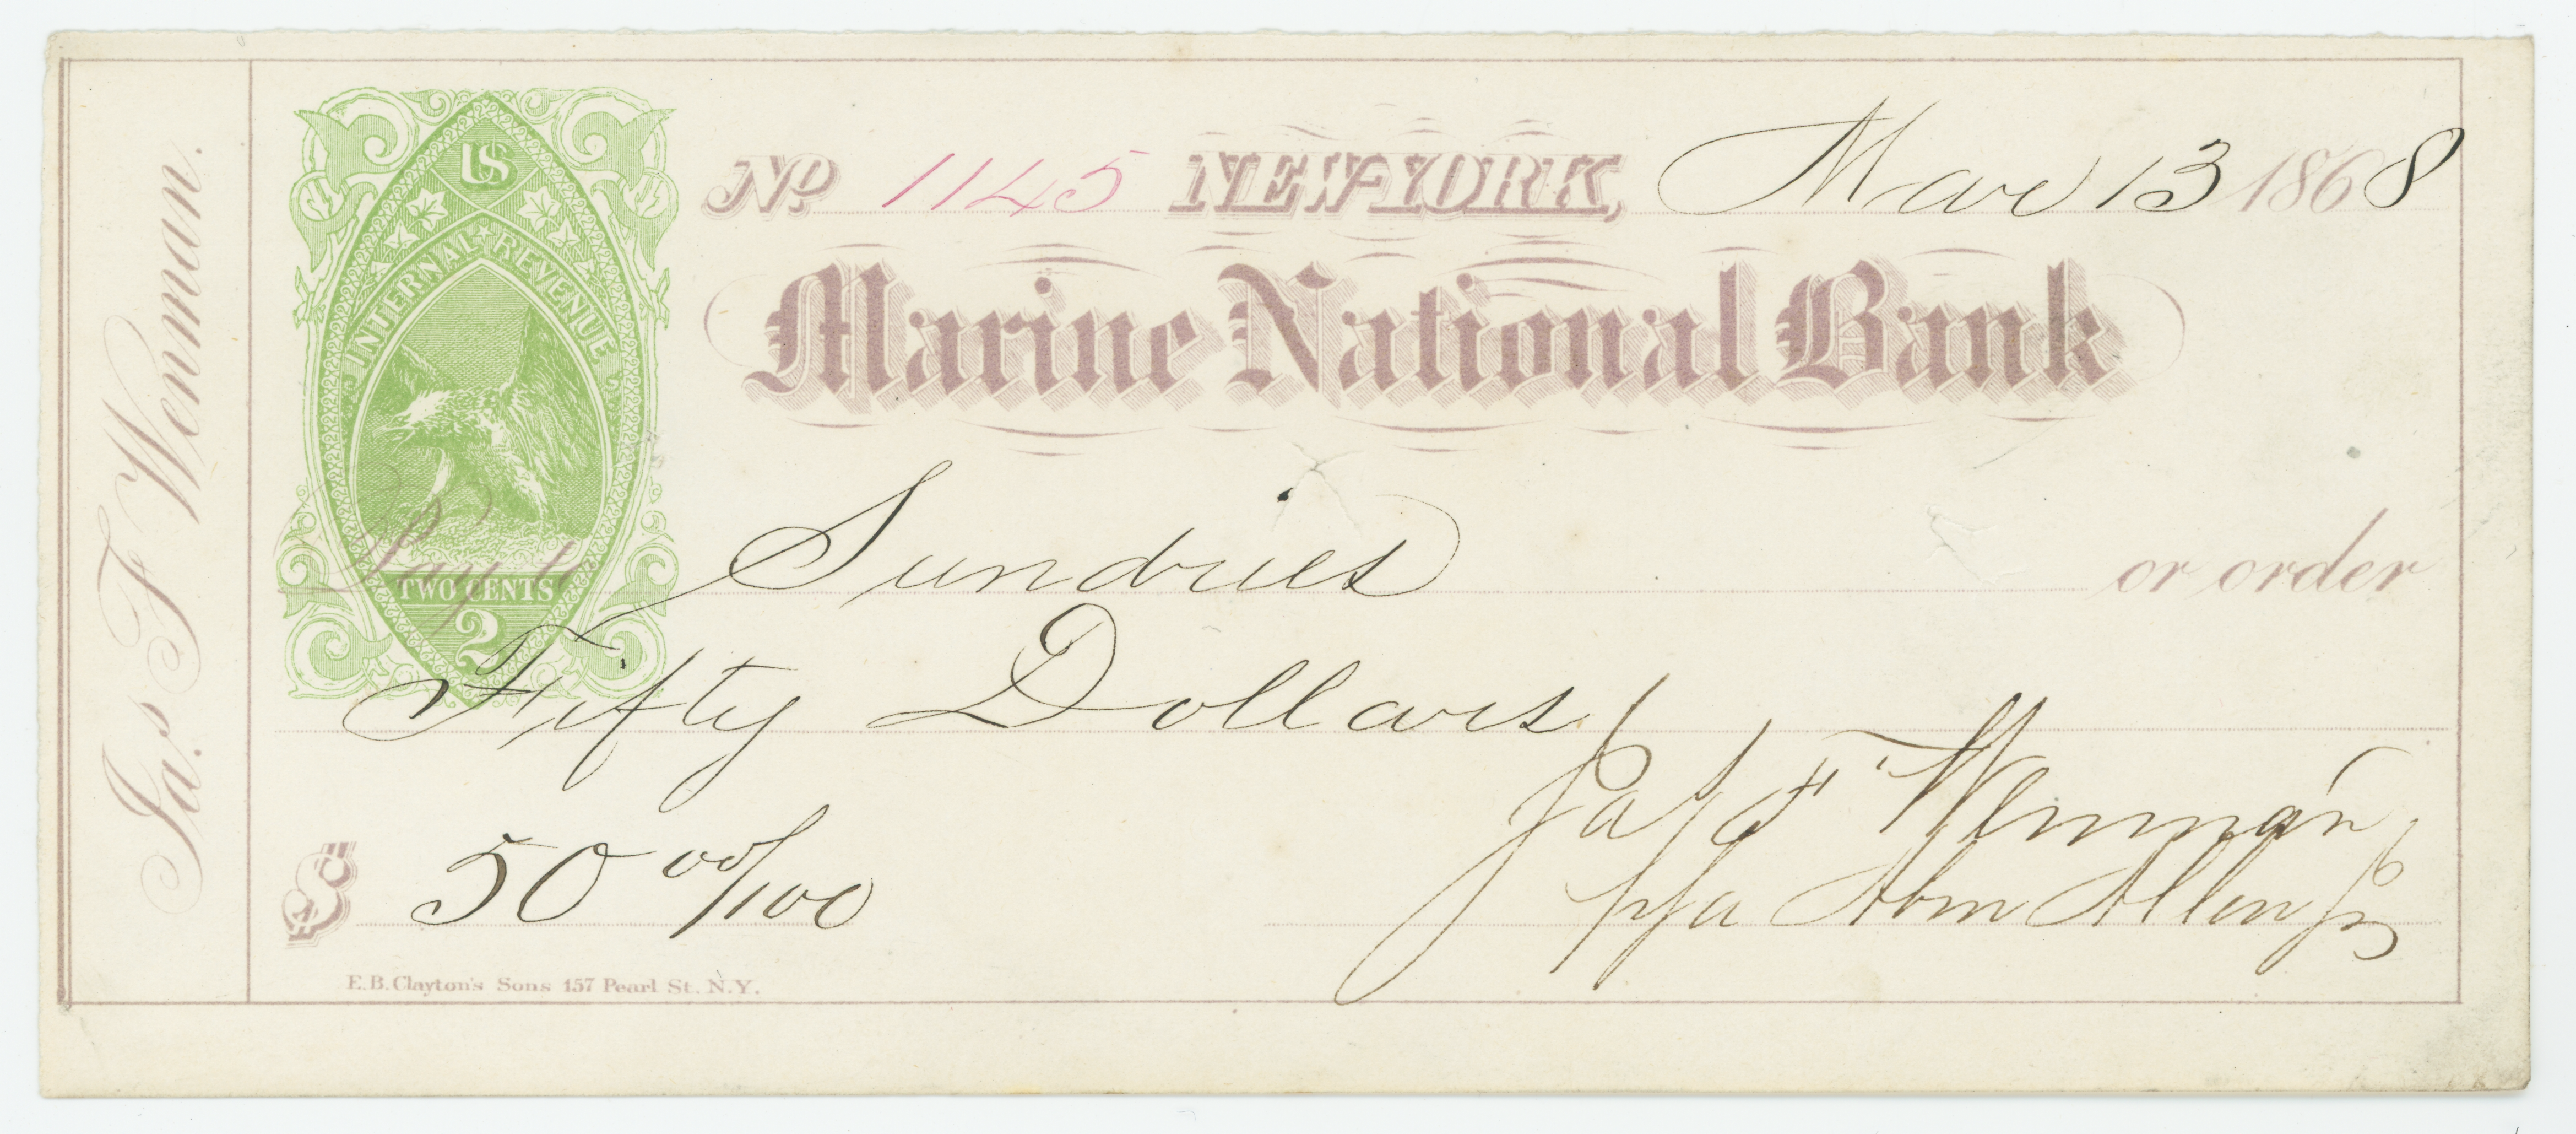 Jas. F Wenman.
US
INTERNAL REVENUE
TWO CENTS
2
No. 1145 NEW-YORK, Mar 13 1868
Marine National Bank
Pay to Sundries or order
Fifty Dollars
$ 50 00/100
Jas F Wenman
ppa Abm Allen Jr
E.B. Clayton's Sons 157 Pearl St. N.Y.